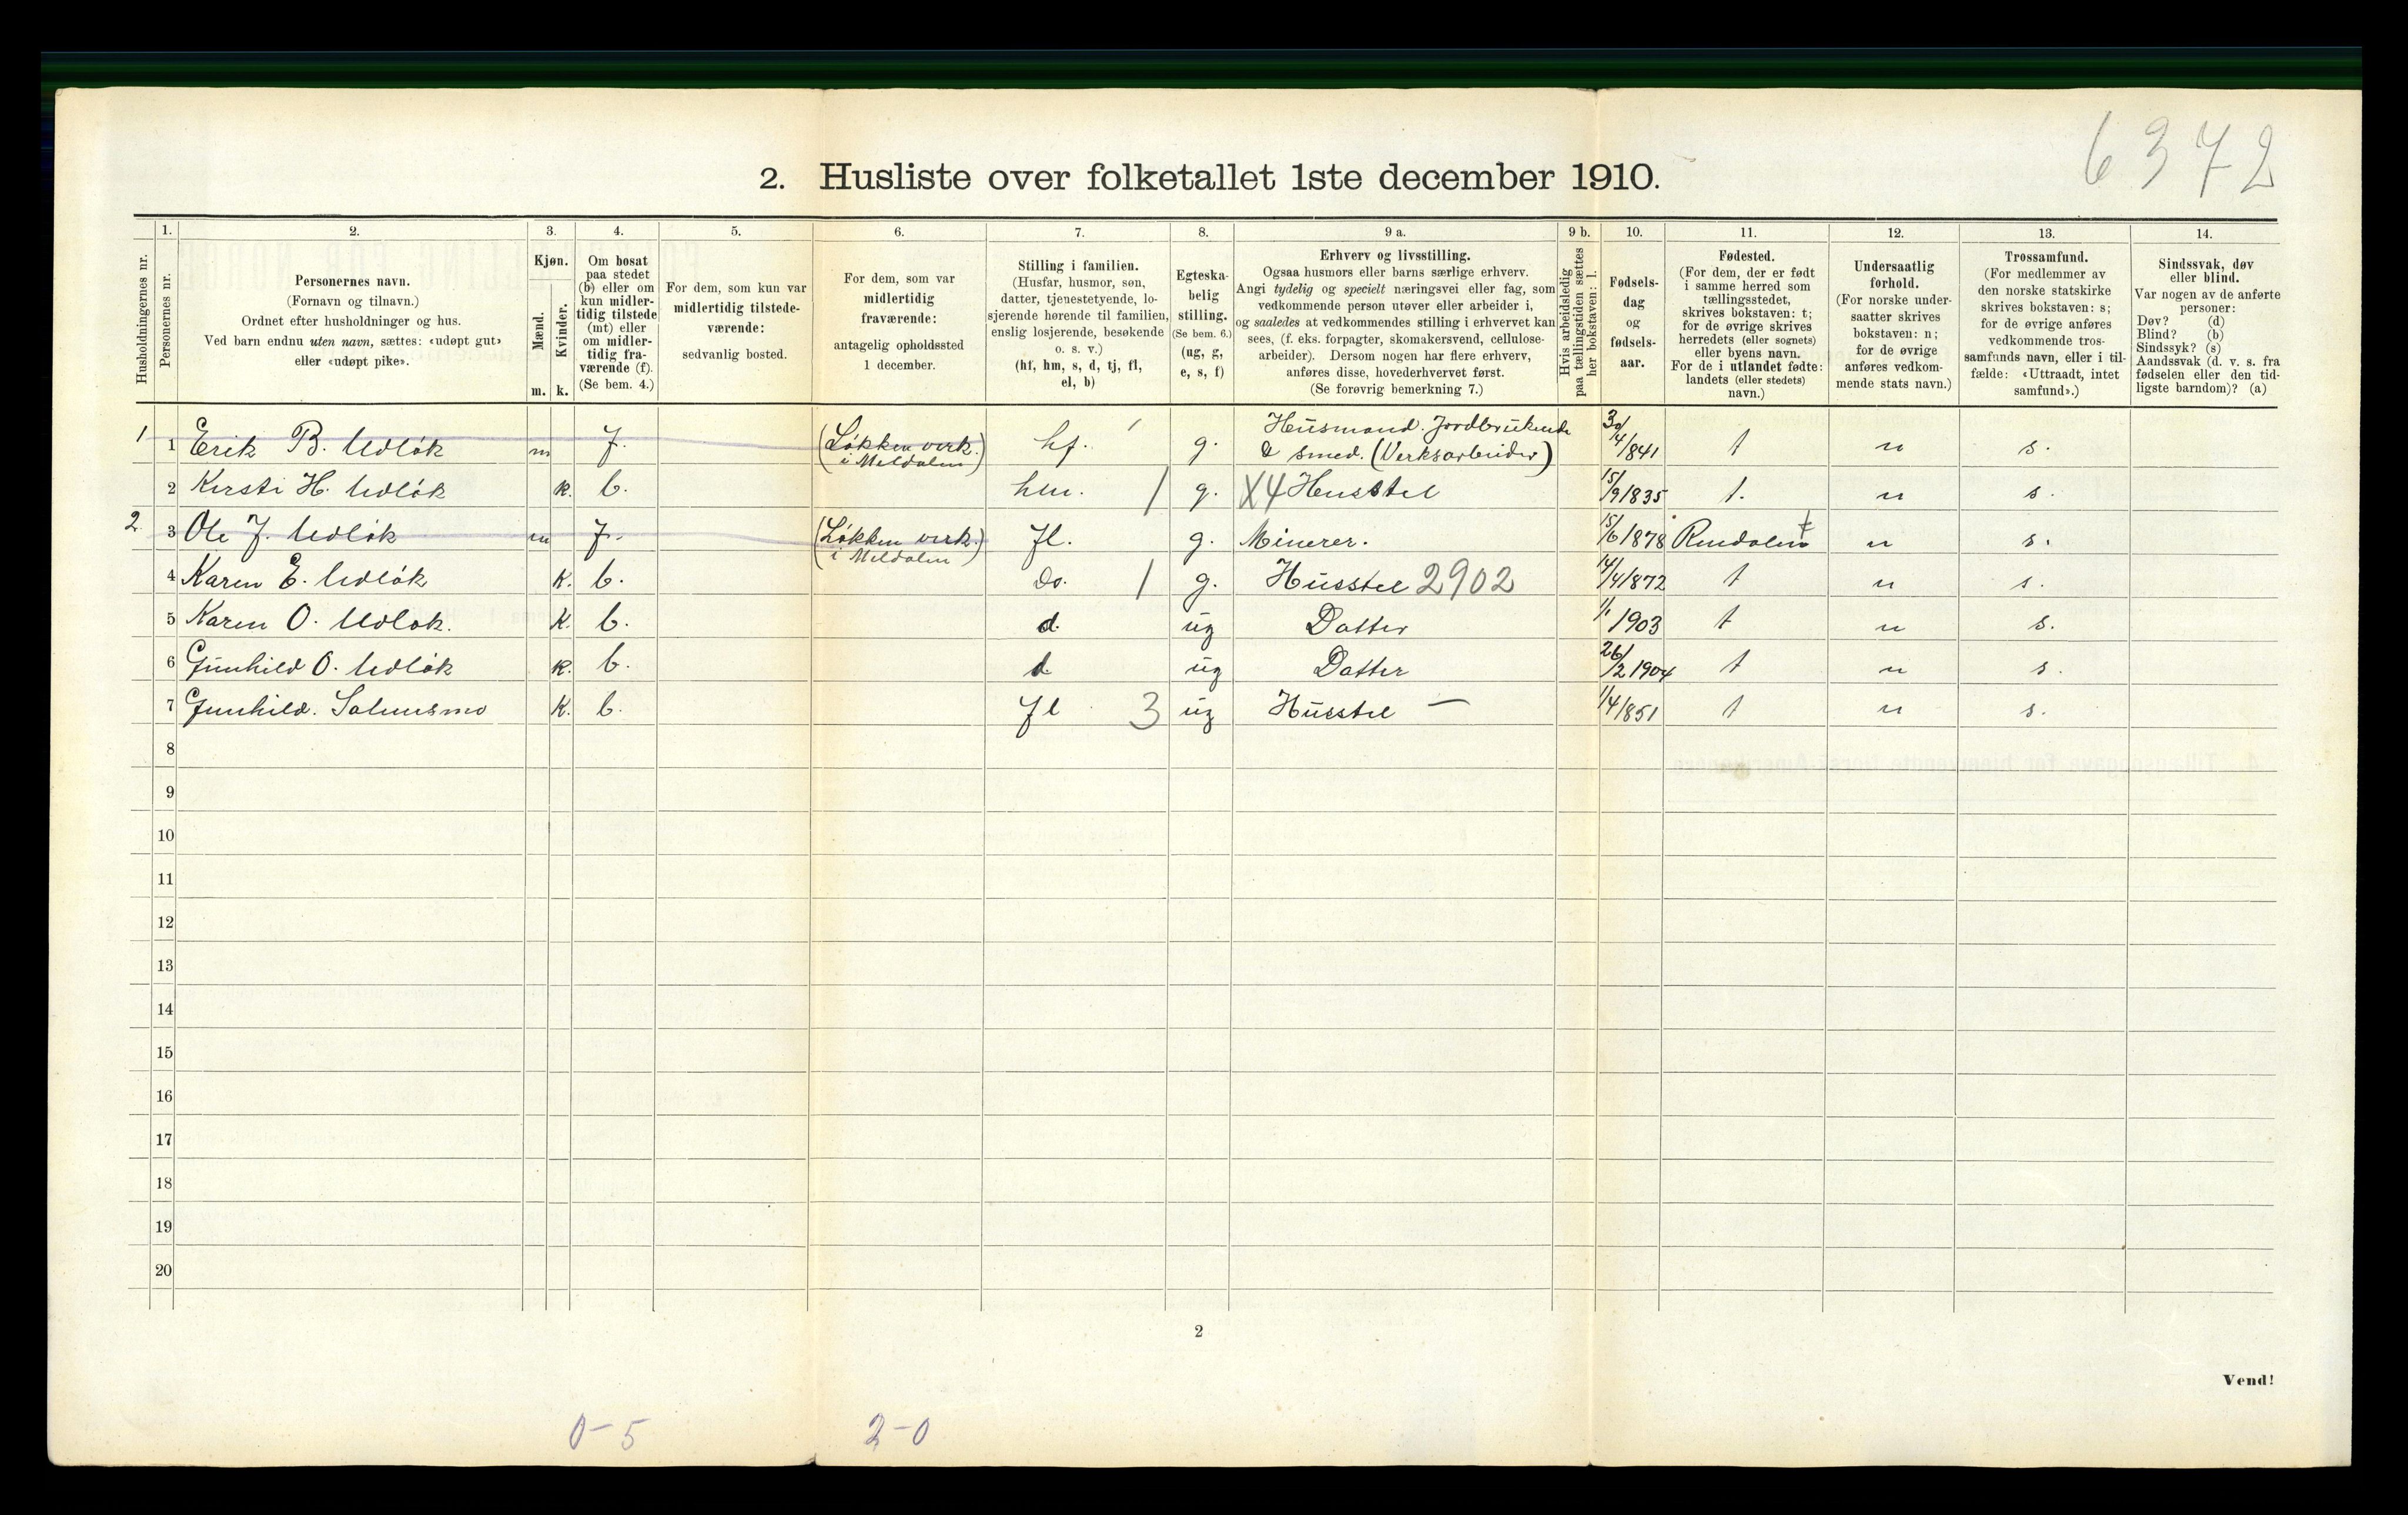 6372
2. Husliste over folketallet 1ste december 1910.
Husholdningernes nr.
1.
Personernes nr.
2.
Personernes navn.
(Fornavn og tilnavn.)
Ordnet efter husholdninger og hus.
Ved barn endnu uten navn, sættes: «udøpt gut»
eller «udøpt pike».
3.
Kjøn.
Mænd.
Kvinder.
m. k.
4.
Om bosat
paa stedet
(b) eller om
kun midler-
tidig tilstede
(mt) eller
om midler-
tidig fra-
værende (f).
(Se bem. 4.)
5.
For dem, som kun var
midlertidig tilstede-
værende:
sedvanlig bosted.
6.
For dem, som var
midlertidig
fraværende:
antagelig opholdssted
1 december.
7.
Stilling i familien.
(Husfar, husmor, søn,
datter, tjenestetyende, lo-
sjerende hørende til familien,
enslig losjerende, besøkende
o. s. v.)
(hf, hm, s, d, tj, fl,
el, b)
8.
Egteska-
belig
stilling.
(Se bem. 6.)
(ug, g,
e, s, f)
9 a.
Erhverv og livsstilling.
Ogsaa husmors eller barns særlige erhverv.
Angi tydelig og specielt næringsvei eller fag, som
vedkommende person utøver eller arbeider i,
og saaledes at vedkommendes stilling i erhvervet kan
sees, (f. eks. forpagter, skomakersvend, cellulose-
arbeider). Dersom nogen har flere erhverv,
anføres disse, hovederhvervet først.
(Se forøvrig bemerkning 7.)
9 b.
Hvis arbeidsledig
paa tællingstiden sættes
her bokstaven: l.
10.
Fødsels-
dag
og
fødsels-
aar.
11.
Fødested.
(For dem, der er født
i samme herred som
tællingsstedet,
skrives bokstaven: t;
for de øvrige skrives
herredets (eller sognets)
eller byens navn.
For de i utlandet fødte:
landets (eller stedets)
navn.)
12.
Undersaatlig
forhold.
(For norske under-
saatter skrives
bokstaven: n;
for de øvrige
anføres vedkom-
mende stats navn.)
13.
Trossamfund.
(For medlemmer av
den norske statskirke
skrives bokstaven: s;
for de øvrige anføres
vedkommende tros-
samfunds navn, eller i til-
fælde: «Uttraadt, intet
samfund».)
14.
Sindssvak, døv
eller blind.
Var nogen av de anførte
personer:
Døv? (d)
Blind? (b)
Sindssyk? (s)
Aandssvak (d. v. s. fra
fødselen eller den tid-
ligste barndom)? (a)
1 1 Erik B. Udlök m f. (Løkken verk. i Meldalen) hf. g. Husmand. Jordbrukende & smed. (Verksarbeider) 30/4/841 t n s.
2 Kersti H. Udlök k. b. hm. 1 g. X4 Husstel 15/9 1835 t. n s.
2 3 Ole J. Udlök m f. (Løkken verk. i Meldalen) fl. g. Minerer. 15/6 1878 Rendalen t n s.
4 Karen E. Udlök K. b. Do. 1 g. Husstel 2902 14/4/872 t n s.
5 Karen O. Udlök. K. b. d. ug Datter 1/1 1903 t n s.
6 Gunhild O. Udlök k. b. d ug Datter 26/2 1904 t n s.
7 Gunhild. Solmusmo K. b. fl 3 ug Husstel — 1/4/851 t n s.
8
9
10
11
12
13
14
15
16
17
18
19
20
2
Vend!
0-5 2-0